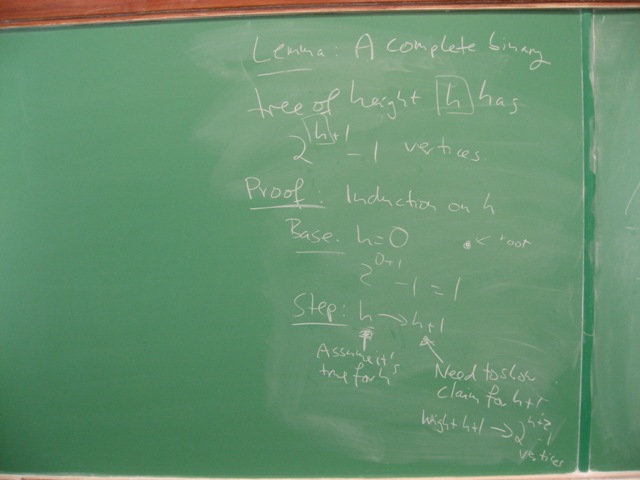 Lemma: A complete binary
tree of height h has
2^{h+1} - 1 vertices.
Proof: Induction on h
Base. h=0 • ← root
2^{0+1} - 1 = 1
Step: h → h+1
Assume it's
true for h
Need to show
claim for h+1
height h+1 → 2^{h+2} - 1
vertices